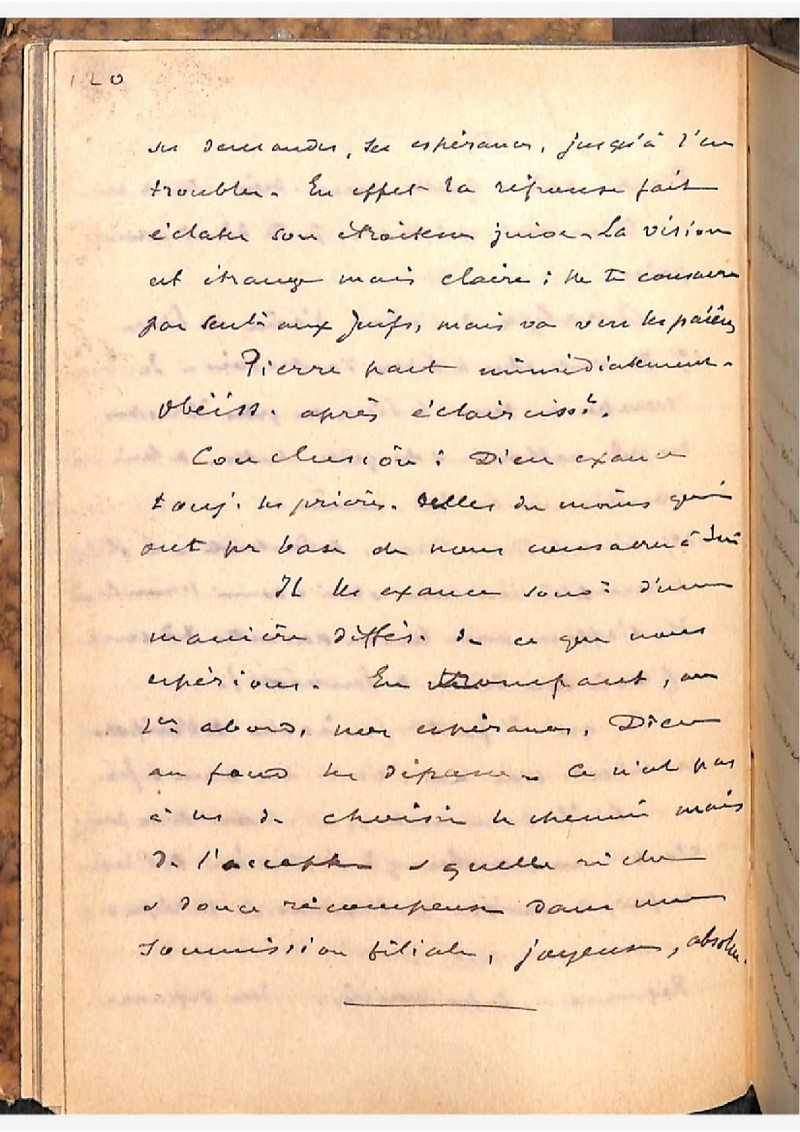 120
ses demandes, ses espérances, jusqu'à l'en
troubler. En effet la réponse fait
éclater son étroitesse juive. La vision
est étrange mais claire : ne te consacre
pas seult aux Juifs, mais va vers les païens
Pierre part immédiatement.
Obéiss. après éclairciss^t.
Conclusion : Dieu exauce
touj. les prières. Celles du moins qui
ont pr base de nous consacrer à Lui
Il les exauce souv^t d'une
manière différ. de ce que nous
espérions. En trompant, au
1er abord, nos espérances, Dieu
au fond les dépasse. Ce n'est pas
à ns de choisir le chemin mais
de l'accepter & quelle riche
& douce récompense dans une
soumission filiale, joyeuse, absolue.